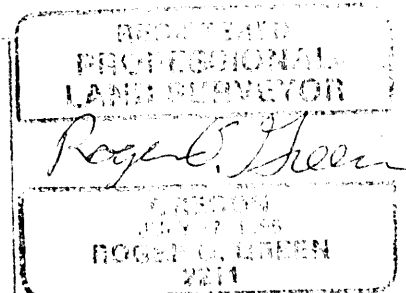 REGISTERED
PROFESSIONAL
LAND SURVEYOR
Roger G. Green
OREGON
ROGER G. GREEN
2211